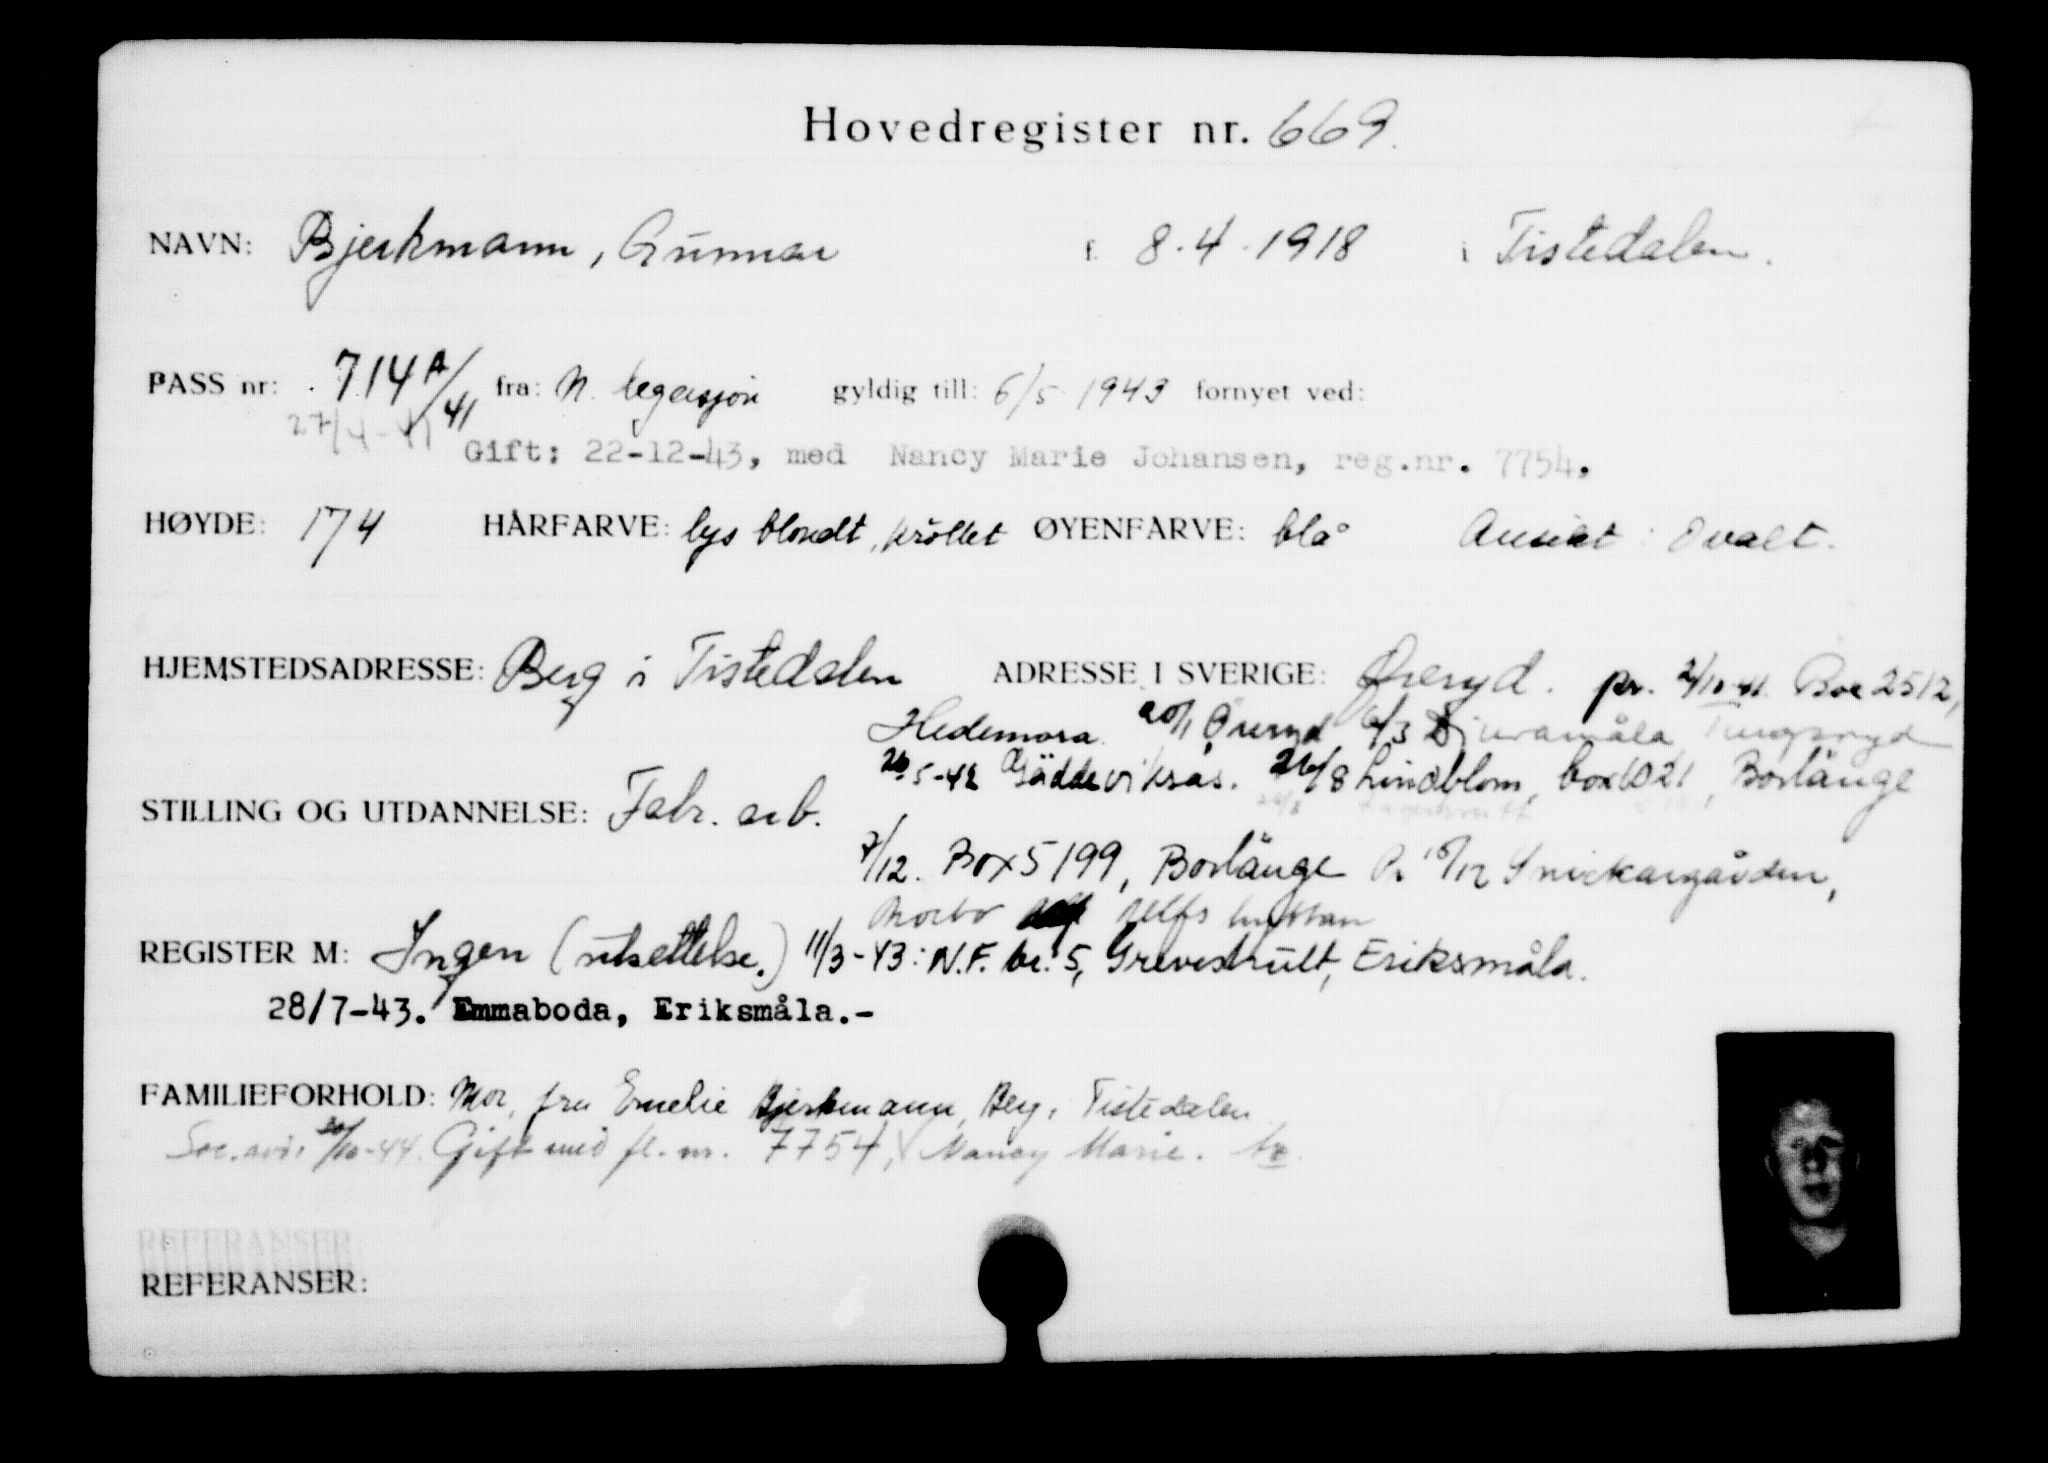 Hovedregister nr. 669.
NAVN: Bjerkmann, Gunnar f. 8.4.1918 i Tistedalen.
PASS nr: 714 A/41 fra: N. legasjon gyldig till: 6/5 1943 fornyet ved:
27/4-41
Gift: 22-12-43, med Nancy Marie Johansen, reg.nr. 7754.
HØYDE: 174 HÅRFARVE: lys blondt, krøllet ØYENFARVE: blå Ansikt: Ovalt.
HJEMSTEDSADRESSE: Berg i Tistedalen ADRESSE I SVERIGE: Øreryd. pr. 2/10-41. Box 2512,
Hedemora. 20/1 Öreryd 6/3 Djuramåla Tingsryd
26.5-42 Gäddeviksås. 26/8 Lindblom, box 6021, Borlänge
STILLING OG UTDANNELSE: Fabr. arb.
7/12. Box 5199, Borlänge Pr 15/12 Snickargården,
hyttan
REGISTER M: Ingen (utsettelse.) 11/3-43: N.F. br. 5, Greveshult, Eriksmåla.
28/7-43. Emmaboda, Eriksmåla.-
FAMILIEFORHOLD: Mor, fru Emelie Bjerkmann, Berg, Tistedalen
Soc. avd. 30/10-44. Gift med fl. nr. 7754, Nancy Marie.
REFERANSER:
REFERANSER: